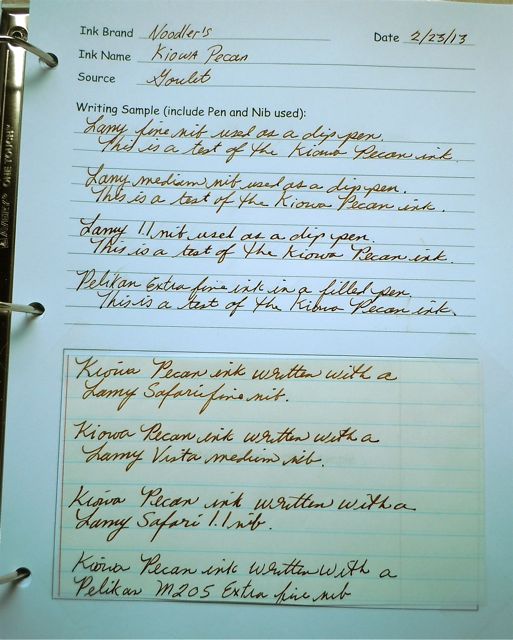 Ink Brand Noodler's
Date 2/23/13
Ink Name Kiowa Pecan
Source Goulet
Writing Sample (include Pen and Nib used):
Lamy fine nib used as a dip pen.
This is a test of the Kiowa Pecan ink.
Lamy medium nib used as a dip pen.
This is a test of the Kiowa Pecan ink.
Lamy 1.1 nib used as a dip pen.
This is a test of the Kiowa Pecan ink.
Pelikan Extra fine ink in a filled pen.
This is a test of the Kiowa Pecan ink.
Kiowa Pecan ink written with a
Lamy Safari fine nib.
Kiowa Pecan ink written with a
Lamy Vista medium nib.
Kiowa Pecan ink written with a
Lamy Safari 1.1 nib.
Kiowa Pecan ink written with a
Pelikan M205 Extra fine nib
ONE TOUCH